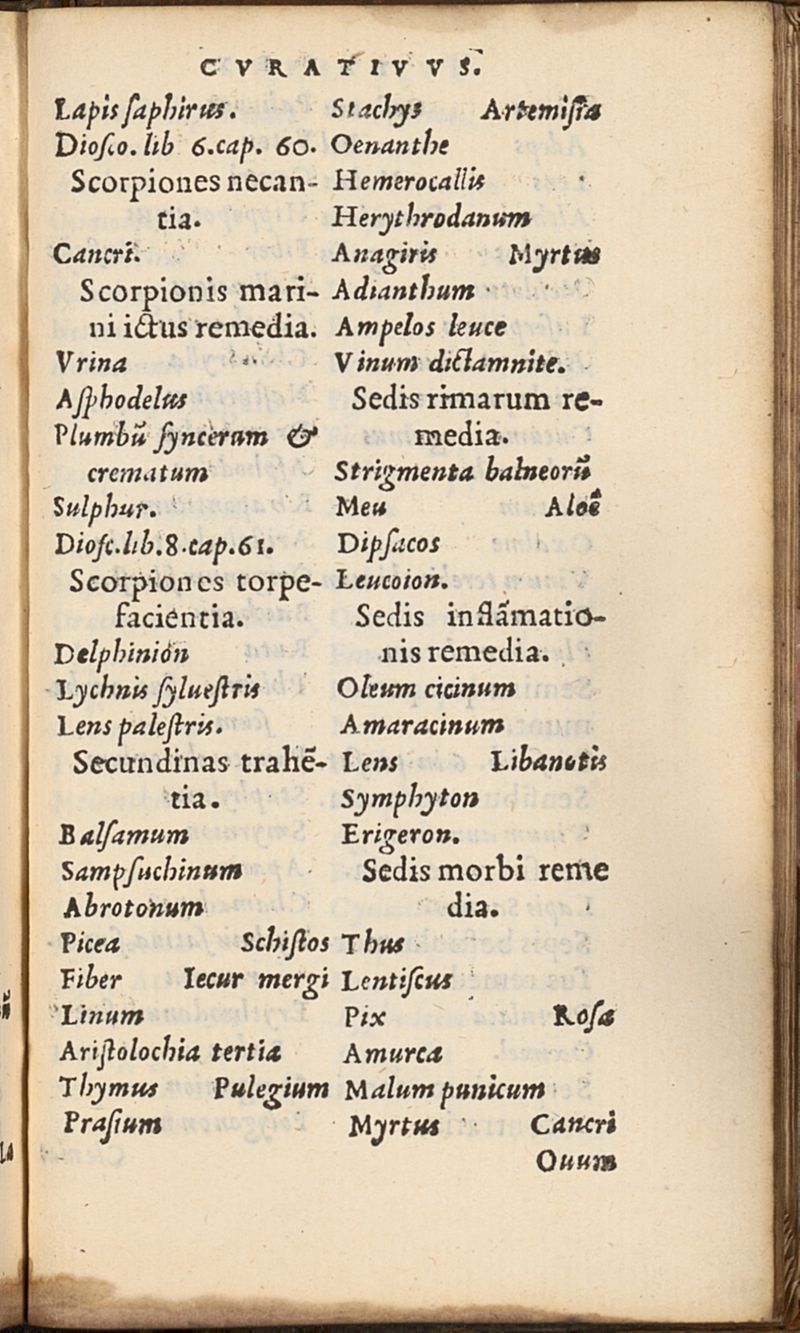 CVRATIVVS.
Lapis ſaphirus.
Dioſco. lib 6. cap. 60.
Scorpiones necan-
tia.
Cancri.
Scorpionis mari-
ni ictus remedia.
Vrina
Aſphodelus
Plumbũ ſyncerum &
crematum
Sulphur.
Dioſc. lib. 8. cap. 61.
Scorpiones torpe-
facientia.
Delphinion
Lychnis ſylueſtris
Lens paleſtris.
Secundinas trahẽ-
tia.
Balſamum
Sampſuchinum
Abrotonum
Picea Schiſtos
Fiber Iecur mergi
Linum
Ariſtolochia tertia
Thymus Pulegium
Praſium
Stachys Artemiſia
Oenanthe
Hemerocallis
Herythrodanum
Anagiris Myrtus
Adianthum
Ampelos leuce
Vinum dictamnite.
Sedis rimarum re-
media.
Strigmenta balneorũ
Meu Aloê
Dipſacos
Leucoion.
Sedis inflãmatio-
nis remedia.
Oleum cicinum
Amaracinum
Lens Libanotis
Symphyton
Erigeron.
Sedis morbi reme
dia.
Thus
Lentiſcus
Pix Roſa
Amurca
Malum punicum
Myrtus Cancri
Ouum